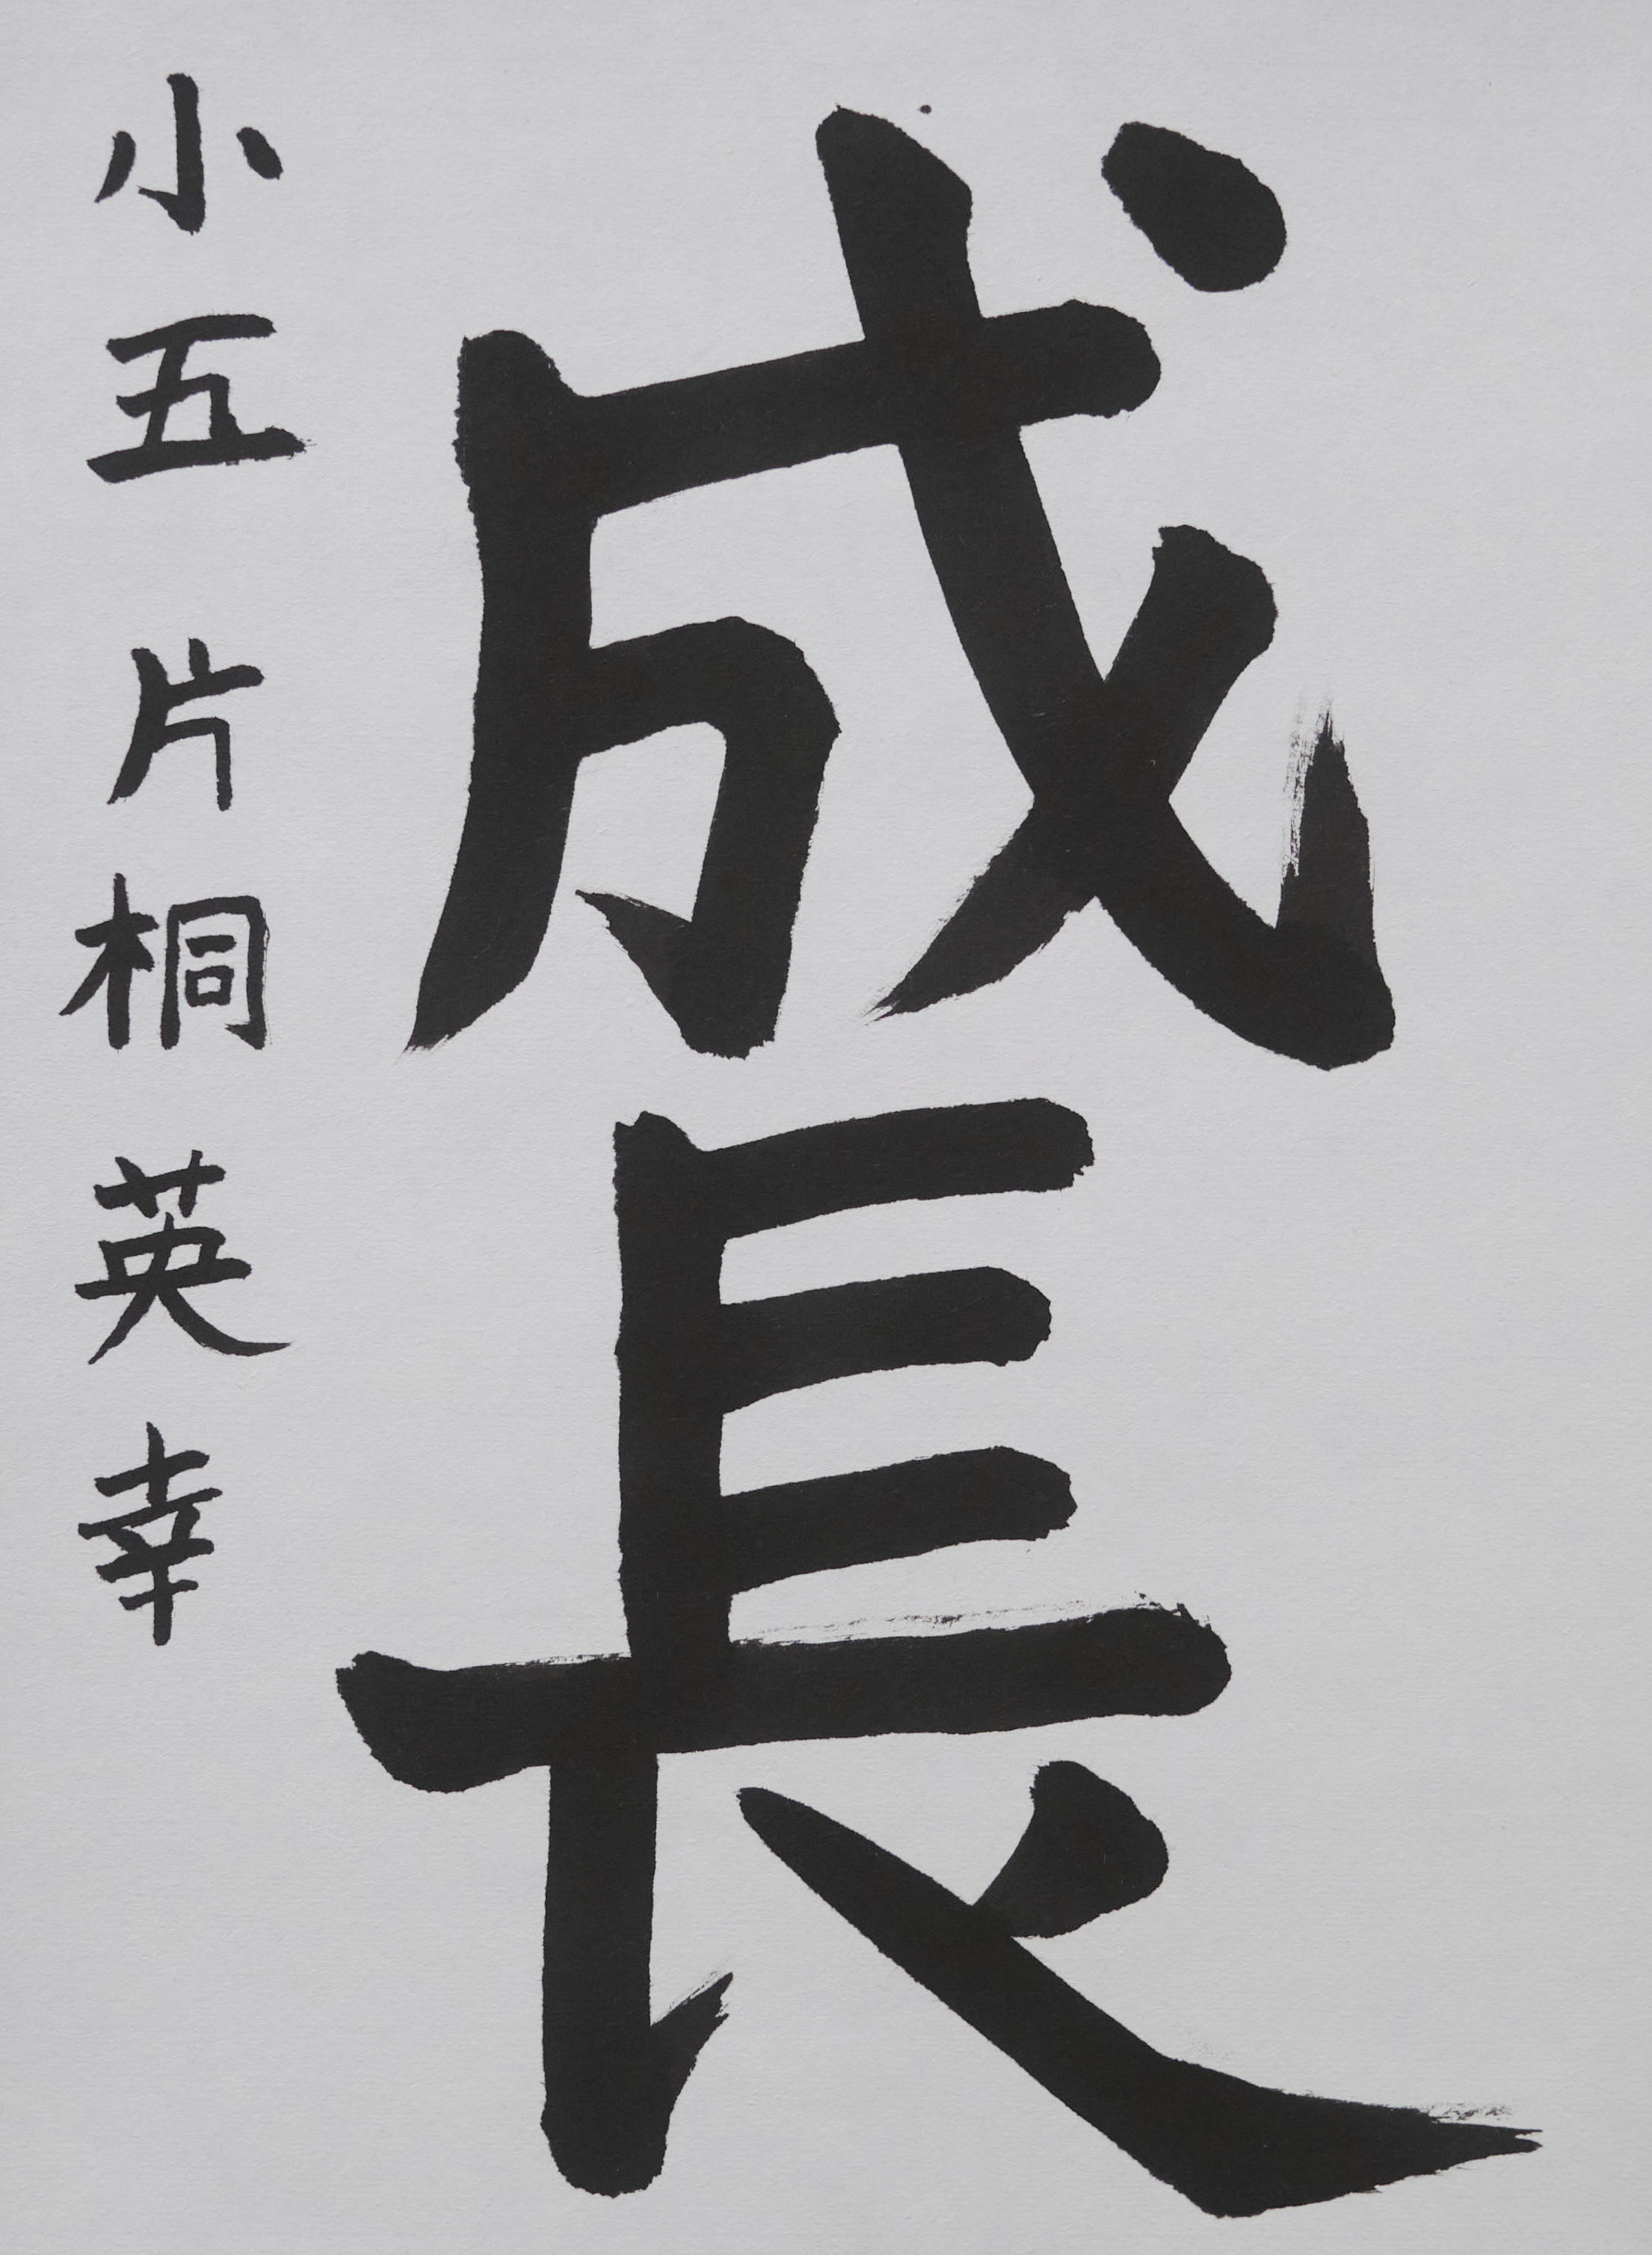 成長
小五 片桐英幸